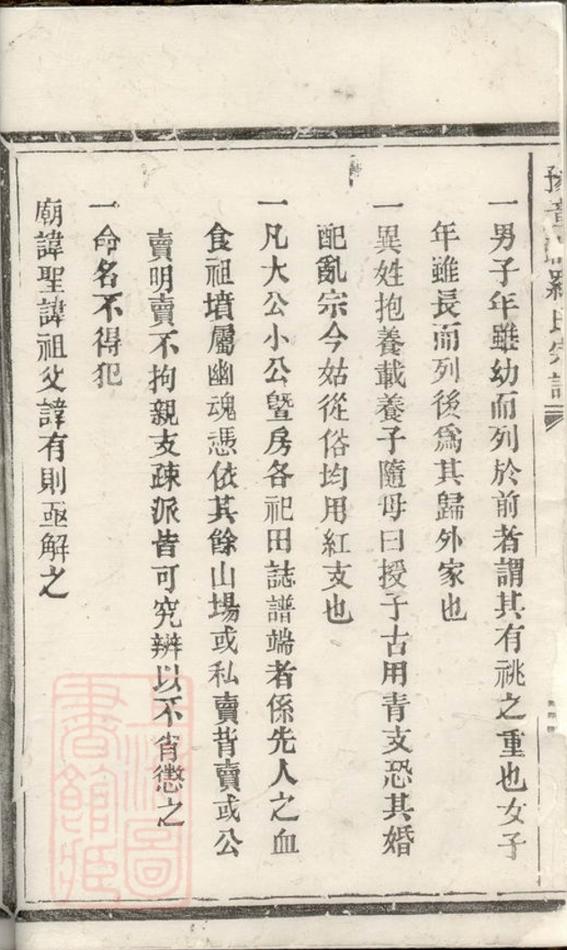 豫章羅氏宗譜
一男子年雖幼而列於前者謂其有祧之重也女子
年雖長而列後爲其歸外家也
一異姓抱養載養子隨母曰授子古用青支恐其婚
配亂宗今姑從俗均用紅支也
一凡大公小公曁房各祀田誌譜端者係先人之血
食祖墳屬幽魂憑依其餘山場或私賣背賣或公
賣明賣不拘親支疎派皆可究辨以不肖懲之
一命名不得犯
廟諱聖諱祖父諱有則亟解之
上海圖
書館藏